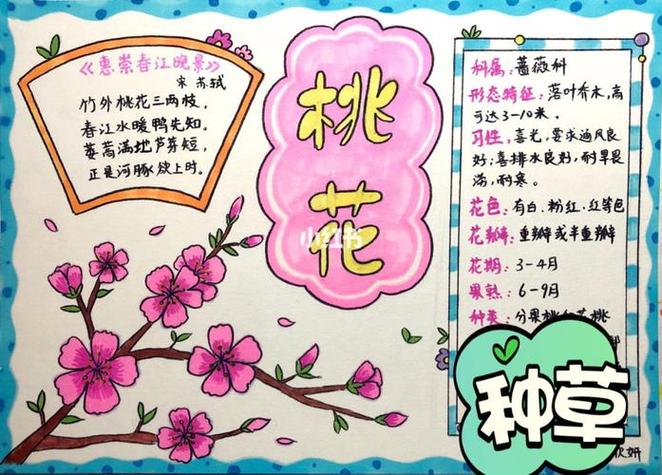 《惠崇春江晚景》
宋 苏轼
竹外桃花三两枝，
春江水暖鸭先知。
蒌蒿满地芦芽短，
正是河豚欲上时。
桃花
小红书
科属：蔷薇科
形态特征：落叶乔木，高
可达3-10米。
习性：喜光，要求通风良
好；喜排水良好，耐旱畏
涝，耐寒。
花色：有白、粉红、红等色
花瓣：重瓣或半重瓣
花期：3-4月
果熟：6-9月
种类：分果桃和花桃
种草